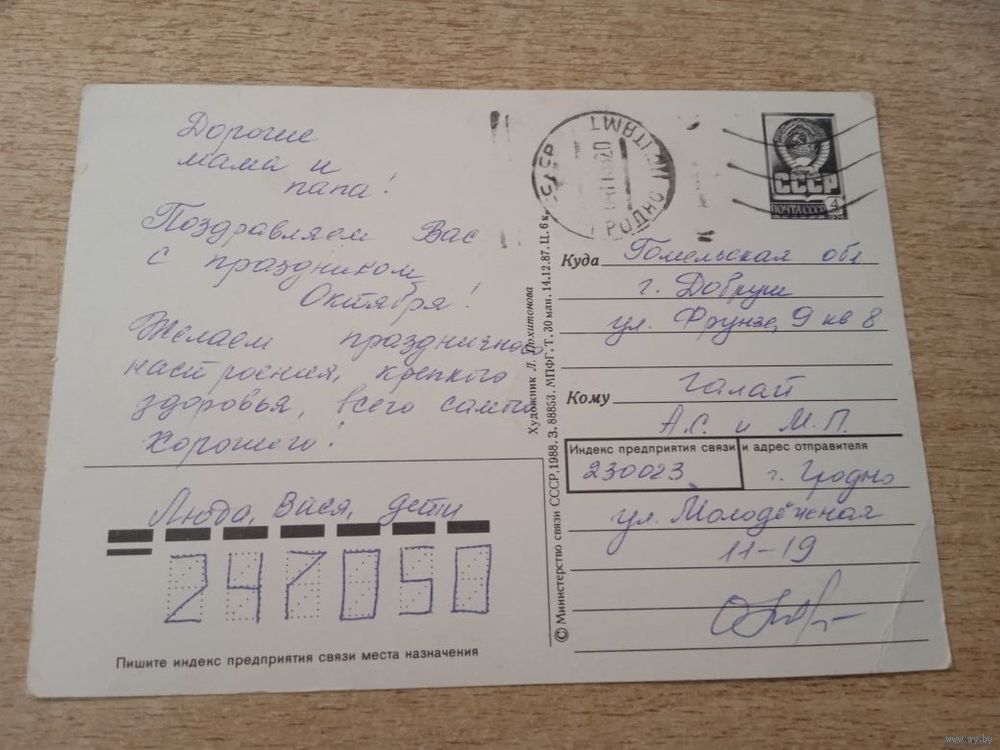 Дорогие
мама и
папа!
Поздравляем Вас
с праздником
Октября!
Желаем праздничного
настроения, крепкого
здоровья, всего самого
хорошего!
Люда, Вася, дети
247050
Пишите индекс предприятия связи места назначения
© Министерство связи СССР, 1988. З. 88853. МПФГ. Т. 30 млн. 14.12.87. Ц. 6 к.
Художник Л. Похитонова
СССР
ГРОДНО ПОЧТАМТ
СССР
ПОЧТА СССР 4
Куда Гомельская обл
г. Добруш
ул. Фрунзе, 9 кв 8
Кому Галай
А.С. и М.П.
Индекс предприятия связи и адрес отправителя
230023 г. Гродно
ул. Молодёжная
11-19
www.ay.by